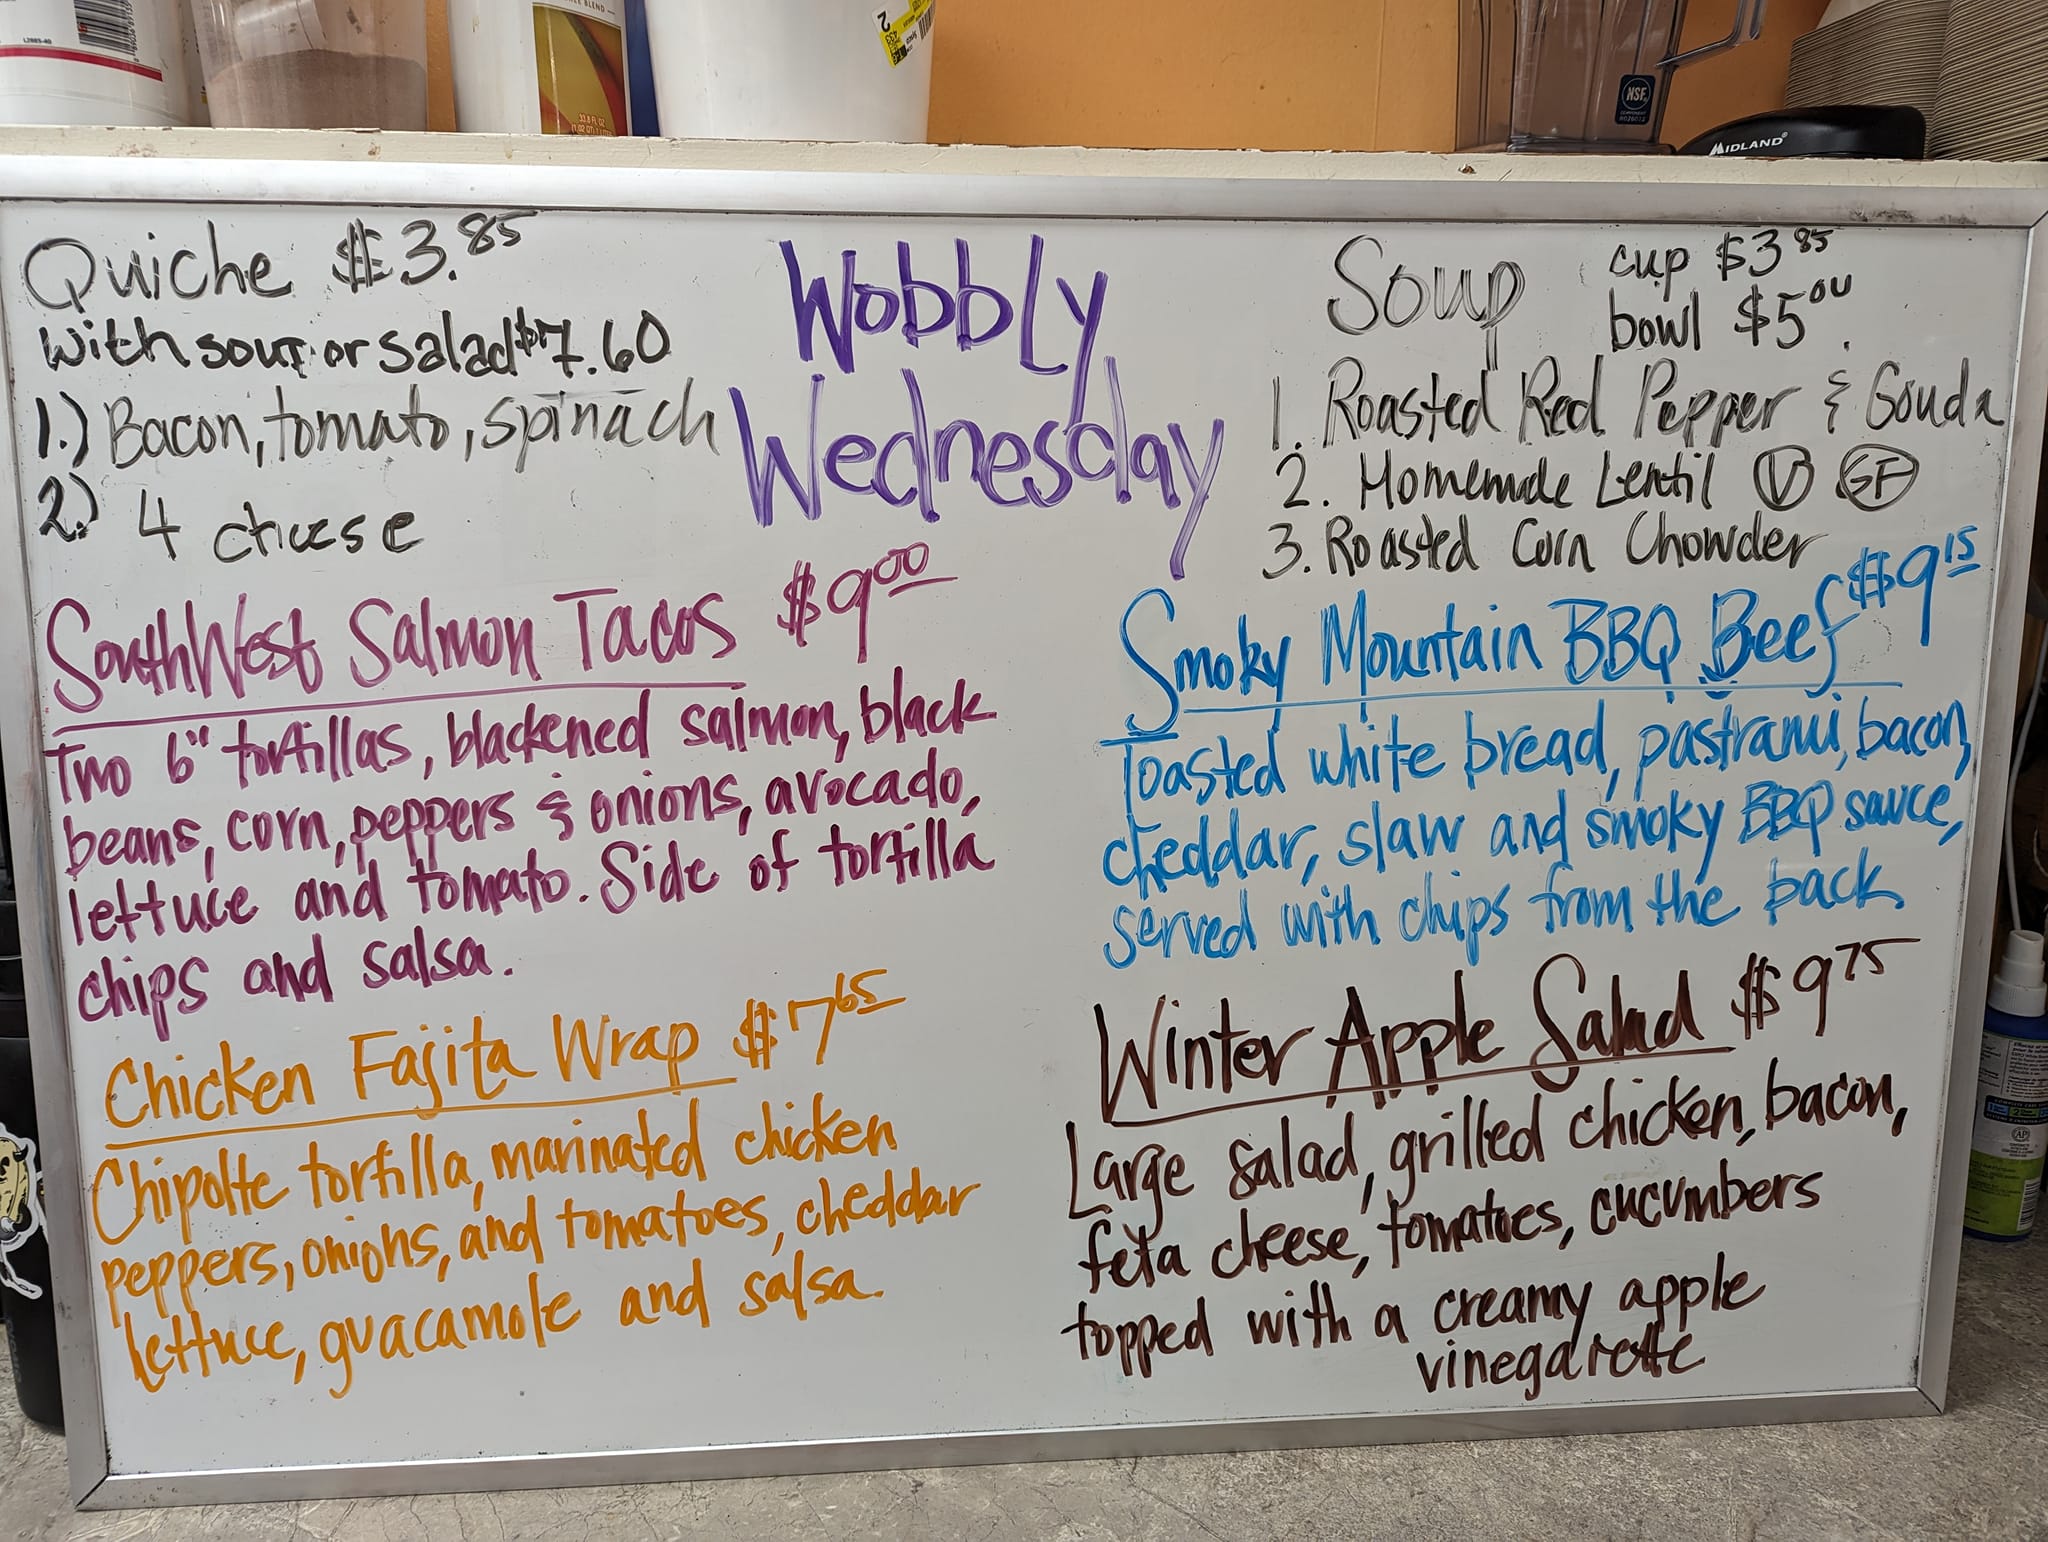 L2985-40
BLEND
33.8 FL OZ
(1.02 QT) 1 LITER
2
NSF
COMPONENT
MIDLAND®
Quiche $3.85
with soup or salad $7.60
1.) Bacon, tomato, spinach
2.) 4 cheese
Wobbly
Wednesday
Soup cup $3 85
bowl $5 00
1. Roasted Red Pepper & Gouda
2. Homemade Lentil V GF
3. Roasted Corn Chowder
SouthWest Salmon Tacos $9 00
Two 6" tortillas, blackened salmon, black
beans, corn, peppers & onions, avocado,
lettuce and tomato. Side of tortilla
chips and salsa.
Chicken Fajita Wrap $7 65
Chipolte tortilla, marinated chicken
peppers, onions, and tomatoes, cheddar
lettuce, guacamole and salsa.
Smoky Mountain BBQ Beef $9 15
Toasted white bread, pastrami, bacon,
cheddar, slaw and smoky BBQ sauce,
served with chips from the back.
Winter Apple Salad $9 75
Large salad, grilled chicken, bacon,
feta cheese, tomatoes, cucumbers
topped with a creamy apple
vinegarette